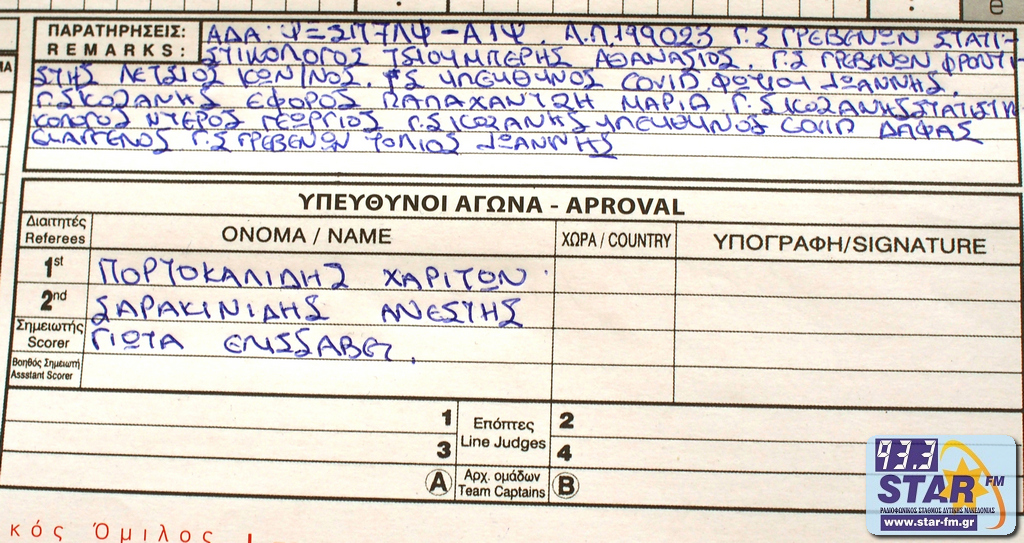 e
ΠΑΡΑΤΗΡΗΣΕΙΣ: ΑΔΑ: Ψ=317ΛΨ-Α1Ψ. Α.Π.199023 Γ.Σ ΓΡΕΒΕΝΩΝ ΣΤΑΤΙ-
REMARKS: ΣΤΙΚΟΛΟΓΟΣ ΤΣΙΟΥΜΠΕΡΗΣ ΑΘΑΝΑΣΙΟΣ, Γ.Σ ΓΡΕΒΕΝΩΝ ΦΡΟΝΤΙ-
ΣΤΗΣ ΛΕΤΣΙΟΣ ΚΩΝ/ΝΟΣ, ΓΣ ΥΠΕΥΘΥΝΟΣ COVID ΦΩΤΙΟΥ ΙΩΑΝΝΗΣ,
Γ.Σ ΚΟΖΑΝΗΣ ΕΦΟΡΟΣ ΠΑΠΑΧΑΝΤΖΗ ΜΑΡΙΑ Γ.Σ ΚΟΖΑΝΗΣ ΣΤΑΤΙΣΤΙΚ
ΟΛΟΓΟΣ ΝΤΕΡΟΣ ΓΕΩΡΓΙΟΣ Γ.Σ ΚΟΖΑΝΗΣ ΥΠΕΥΘΥΝΟΣ COVID ΔΑΦΑΣ
ΕΥΑΓΓΕΛΟΣ Γ.Σ ΓΡΕΒΕΝΩΝ ΙΩΑΝΝΗΣ
ΥΠΕΥΘΥΝΟΙ ΑΓΩΝΑ - APROVAL
Διαιτητές
Referees ΟΝΟΜΑ / NAME ΧΩΡΑ / COUNTRY ΥΠΟΓΡΑΦΗ/SIGNATURE
1st ΠΟΡΤΟΚΑΛΙΔΗΣ ΧΑΡΙΤΩΝ
2nd ΣΑΡΑΚΙΝΙΔΗΣ ΑΝΕΣΤΗΣ
Σημειωτής
Scorer ΓΙΩΤΑ ΕΛΙΣΣΑΒΕΤ.
Βοηθός Σημειωτή
Assstant Scorer
1 Επόπτες 2
3 Line Judges 4
A Αρχ. ομάδων B
Team Captains
κός Όμιλος
93.3
STAR FM
ΡΑΔΙΟΦΩΝΙΚΟΣ ΣΤΑΘΜΟΣ ΔΥΤΙΚΗΣ ΜΑΚΕΔΟΝΙΑΣ
www.star-fm.gr